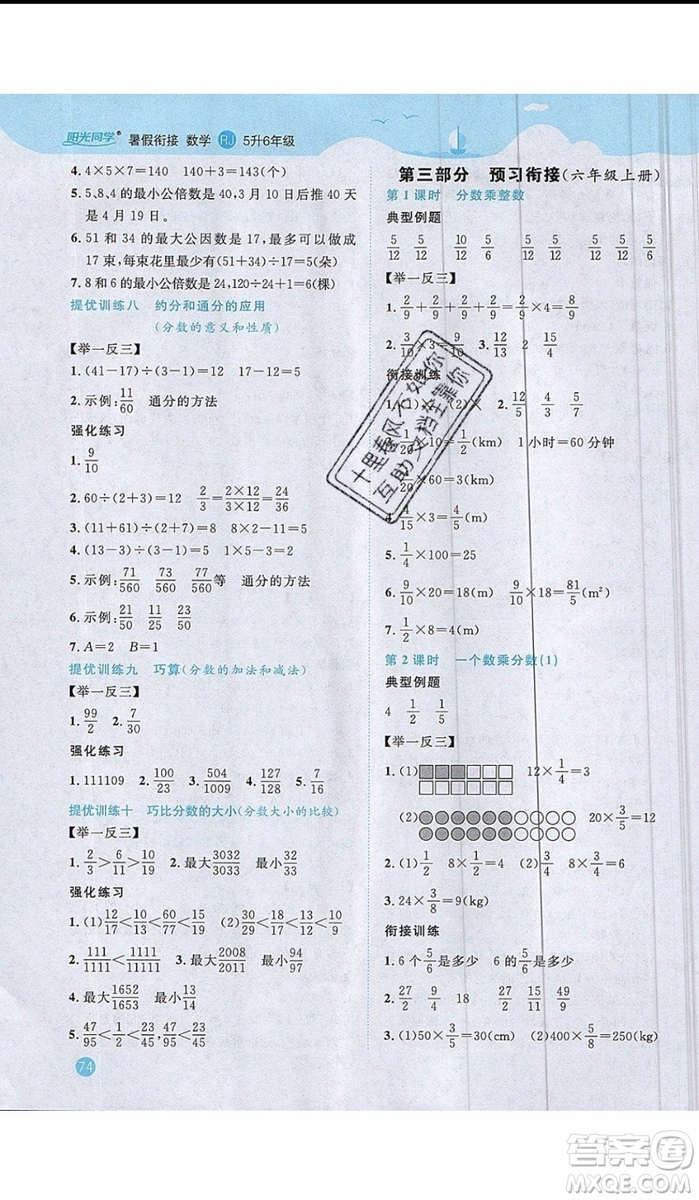 阳光同学® 暑假衔接 数学 RJ 5升6年级
4. 4×5×7=140 140+3=143(本)
5. 5、8、4的最小公倍数是40,所以再过40天
是4月19日。
6. 51和34的最大公因数是17,最多可以做成
17束,每束花里最少有(51+34)÷17=5(朵)
7. 8和6的最小公倍数是24,120÷24=5(棵)
提优训练八 约分和通分的应用
(分数的意义和性质)
【举一反三】
1. (41-17)÷(3-1)=12 17-12=5
2. 示例:11/60 通分的方法
强化练习
1. 9/10
2. 60÷(2+3)=12 2/3=2×12/3×12=24/36
3. (11+61)÷(7+2)=8 8×2-11=5
4. (13-3)÷(3-2)=10 10-3=7
5. 示例:71/560 73/560 67/560等 通分的方法
6. 示例:21/50 11/50 23/50
7. A=2 B=1
提优训练九 巧算(分数的加法和减法)
【举一反三】
1. 99/2 2. 7/30
强化练习
1. 111109 2. 100/23 3. 504/1009 4. 127/128 5. 7/16
提优训练十 巧比分数的大小(分数大小的比较)
【举一反三】
1. 2/3>6/11>10/19 2. 最大3032/3033 最小30/31
强化练习
1. (1)12/17<10/13<15/19<60/73 (2)20/47<30/59<15/28<12/19
2. 111/1111<1111/11111 3. 最大2008/2009 最小94/97
4. 最大1652/1653 最小22/23
5. 47/95<1/2<23/45 47/95<1/2<23/45
74
第三部分 预习衔接(六年级上册)
第1课时 分数乘整数
典型例题
5/12 5/12 10/12 5/6 5/12 5/12 5/6 5/6
【举一反三】
1. 2/9+2/9+2/9+2/9=2/9×4=8/9
2. 3/10×3=9/10 3. 12/13 2 15/4
衔接训练
1. (1) (2)× 2. 12/5 4/9
=1/2(km) 1小时=60分钟
1/20×60=3(km)
4. 4/15×3=4/5(m)
5. 1/4×100=25
6. 9/10×20=18(m) 9/10×18=81/5(m²)
7. 1/2×8=4(m)
第2课时 一个数乘分数(1)
典型例题
4 1/2 1/5
【举一反三】
1. (1) 12×1/4=3
(2) 20×3/5=12
2. (1)1/2 8×1/2=4 (2)1/4 8×1/4=2
3. 24×3/8=9(kg)
衔接训练
1. 6个5/6是多少 6的5/6是多少
2. 27/2 9/4 18 27/2 9/14 5/6
3. (1)50×3/5=30(m) (2)400×5/8=250(kg)
十里春风不如你
互助文档全靠你
答案圈
MXQE.COM